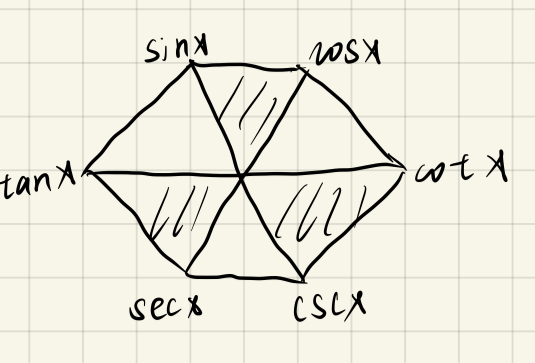 sinx cosx
tanx cotx
secx cscx